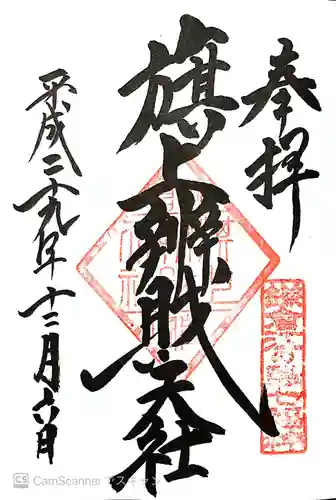 奉拝
旗上辨財天社
平成二十九年十二月六日
CS CamScanner でスキャン